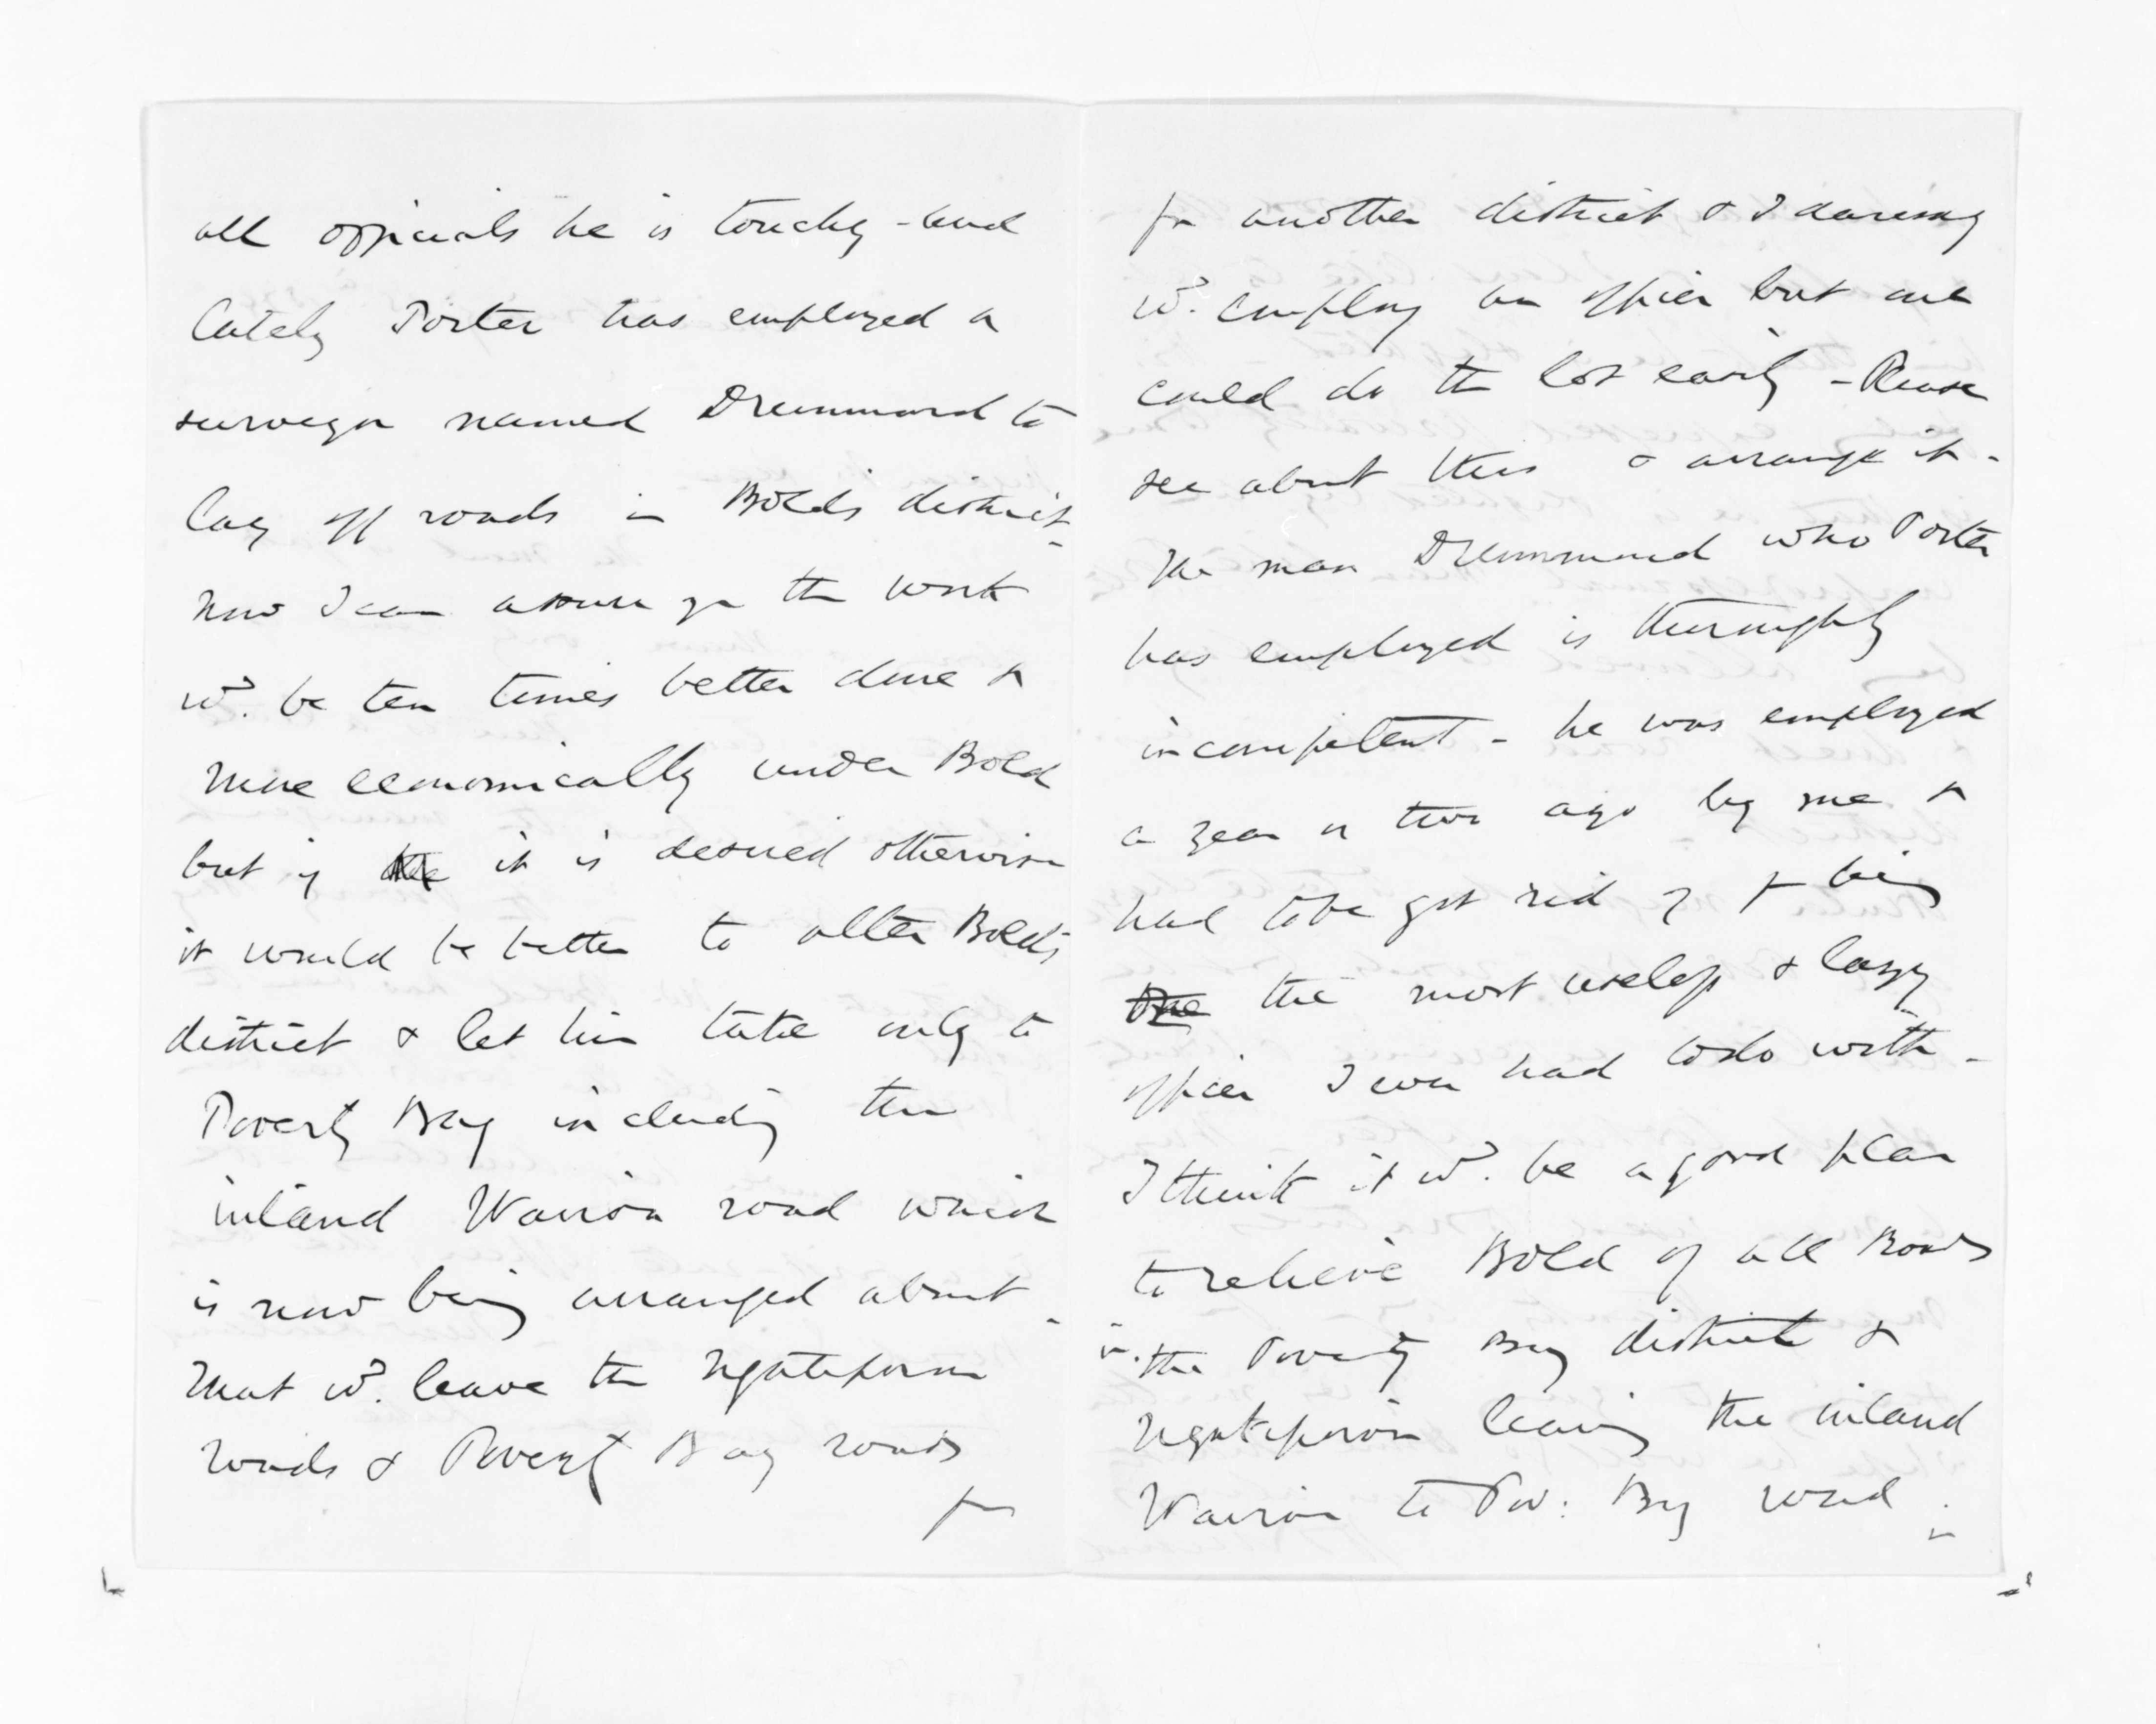 all officials he is touchy - and
lately Porter has employed a
surveyor named Drummond to
lay off roads in Bolds district -
now I can assure you the work
wd. be ten times better done &
more economically under Bold
but if the it is desired otherwise
it would be better to alter Bold's
district & let him take only to
Poverty Bay including the
inland Wairoa road which
is now being arranged about -
that wd. leave the Ngatiporou
roads & Poverty Bay roads
for
for another district & I daresay
wd. employ an officer but one
could do the lot easily - Please
see about this & arrange it -
The man Drummond who Porter
has employed is thoroughly
incompetent - he was employed
a year or two ago by me &
had to be got rid of for being
One the most useless & lazy
officer I ever had to do with -
I think it wd. be a good plan
to relieve Bold of all Roads
in the Poverty Bay district &
Ngatiporou leaving the inland
Wairoa to Pov: Bay road